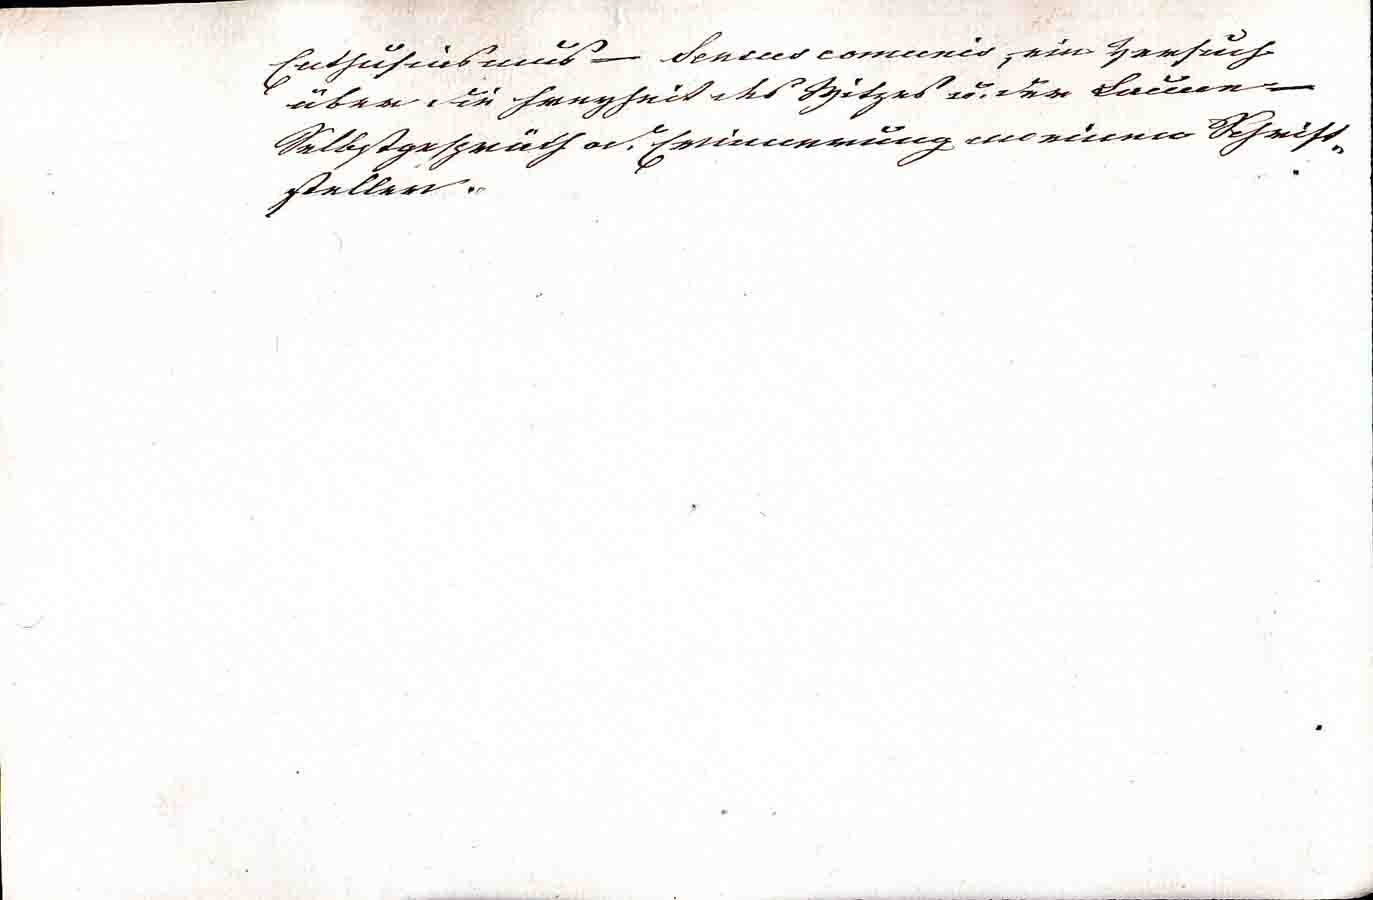 Enthusiasmus — Sensus comunis, ein Versuch
über die Freyheit des Witzes u. der Laune —
Selbstgespräch od. Erinnerung an einen Schrift„
steller.